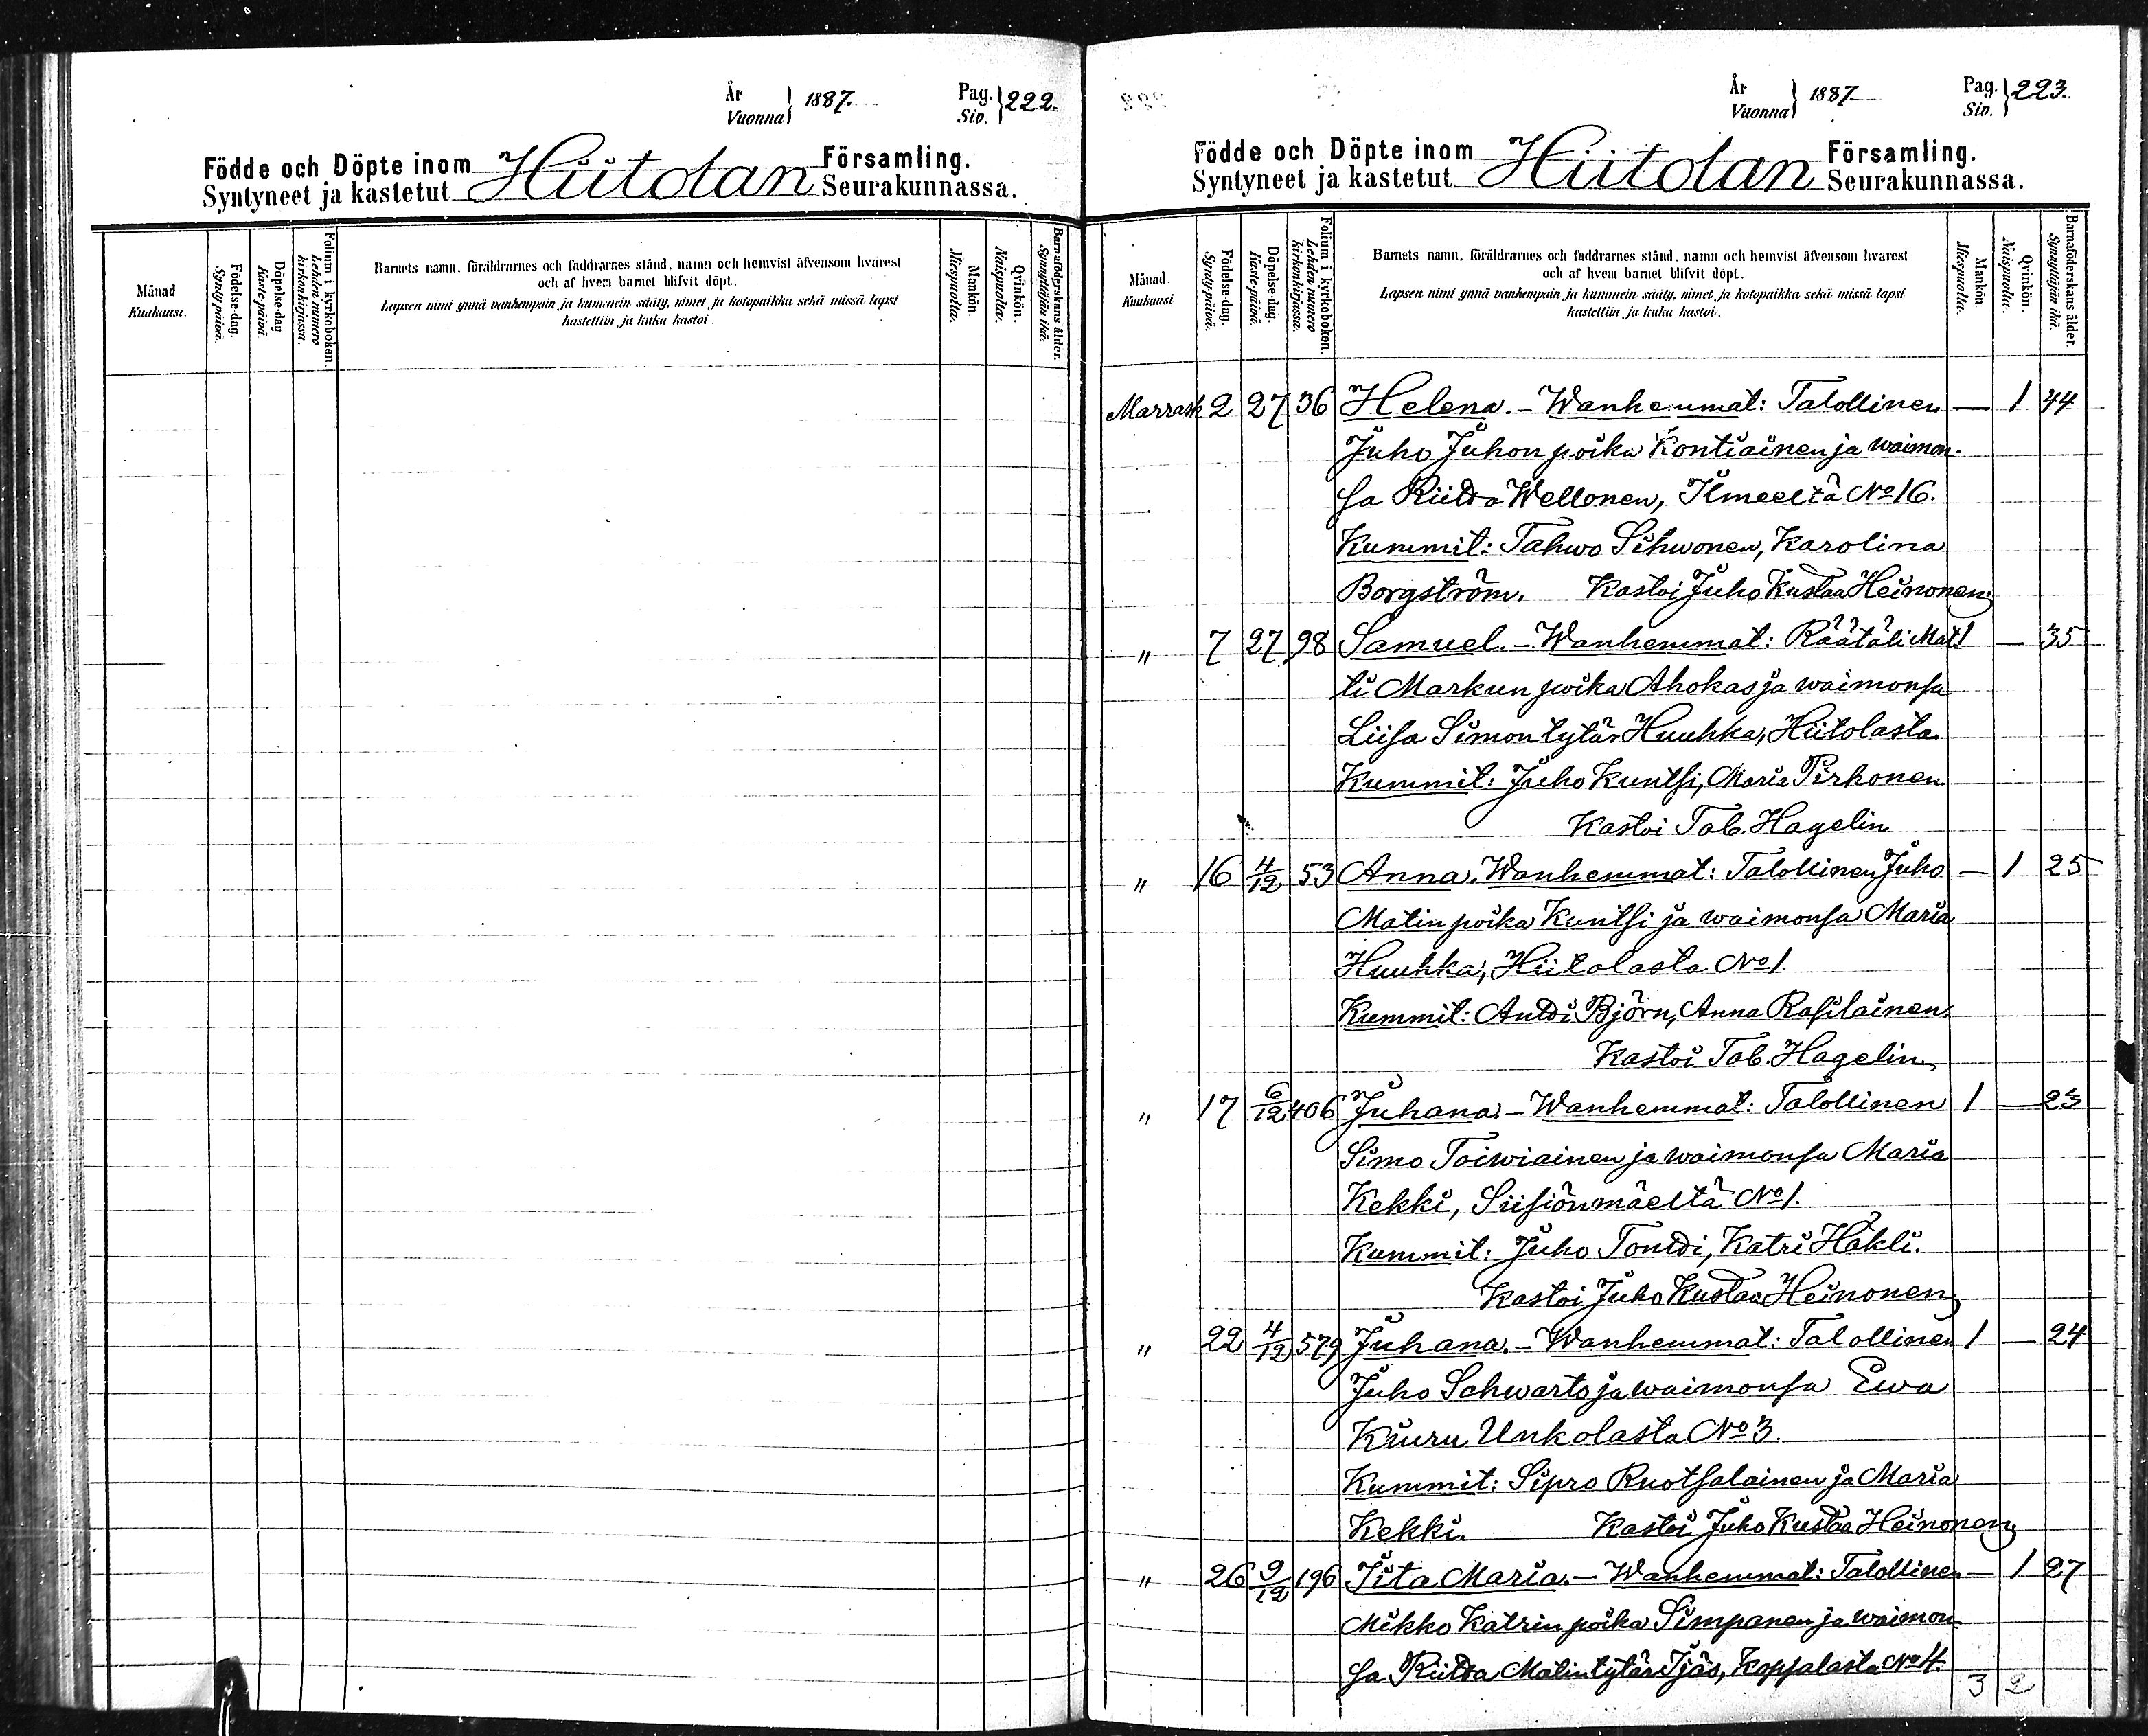 År
Vuonna } 1887.
Pag.
Siv. } 222.
Födde och Döpte inom Hiitolan Församling.
Syntyneet ja kastetut Seurakunnassa.
Månad
Kuukausi.
Födelse-dag.
Synty-päivä.
Döpelse-dag
Kaste-päivä
Folium i kyrkoboken.
Lehden numero
kirkonkirjassa.
Barnets namn, föräldrarnes och faddrarnes stånd, namn och hemvist äfvensom hvarest
och af hvem barnet blifvit döpt.
Lapsen nimi ynnä vanhempain ja kummein sääty, nimet ja kotopaikka sekä missä lapsi
kastettiin ja kuka kastoi.
Mankön
Miespuolta.
Qvinkön.
Naispuolta.
Barnaföderskans ålder.
Synnyttäjän ikä.
År
Vuonna } 1887
Pag.
Siv. } 223.
Födde och Döpte inom Hiitolan Församling.
Syntyneet ja kastetut Seurakunnassa.
Månad.
Kuukausi
Födelse-dag.
Synty-päivä.
Döpelse-dag.
Kaste-päivä.
Folium i kyrkoboken.
Lehden numero
kirkonkirjassa.
Barnets namn, föräldrarnes och faddrarnes stånd, namn och hemvist äfvensom hvarest
och af hvem barnet blifvit döpt.
Lapsen nimi ynnä vanhempain ja kummein sääty, nimet ja kotopaikka sekä missä lapsi
kastettiin ja kuka kastoi.
Mankön
Miespuolta.
Qvinkön.
Naispuolta.
Barnaföderskans ålder.
Synnyttäjän ikä.
Marrask 2 27 36 Helena. - Wanhemmat: Talollinen — 1 44
Juho Juhon poika Kontiainen ja waimon-
sa Riitta Wellonen, Ilmeeltä No 16.
Kummit: Tahwo Sihwonen, Karolina
Borgström. Kastoi Juho Kustaa Heinonen
" 7 27 98 Samuel. - Wanhemmat: Räätäli Mat 1 — 35
ti Markun poika Ahokas ja waimonsa
Liisa Simon tytär Huuhka, Hiitolasta
Kummit: Juho Kuntsi, Maria Pirhonen
Kastoi Tab. Hagelin
" 16 4/12 53 Anna. Wanhemmat: Talollinen Juho — 1 25
Matin poika Kuntsi ja waimonsa Maria
Huuhka, Hiitolasta No 1.
Kummit: Antti Björn, Anna Rasilainen.
Kastoi Tab. Hagelin
" 17 6/12 406 Juhana. - Wanhemmat: Talollinen 1 — 23
Simo Toiwiainen ja waimonsa Maria
Kekki, Siisiönmäeltä No 1.
Kummit: Juho Tontti, Katri Häkli.
Kastoi Juho Kustaa Heinonen
" 22 4/12 579 Juhana. - Wanhemmat: Talollinen 1 — 24
Juho Schwarts ja waimonsa Ewa
Kiuru Unkolasta No 3
Kummit: Sipro Ruotsalainen ja Maria
Kekki. Kastoi Juho Kustaa Heinonen
" 26 9/12 196 Iita Maria. - Wanhemmat: Talollinen — 1 27
Mikko Katrin poika Simpanen ja waimon-
sa Riitta Matin tytär Ijäs, Kopsalasta No 4.
3 2